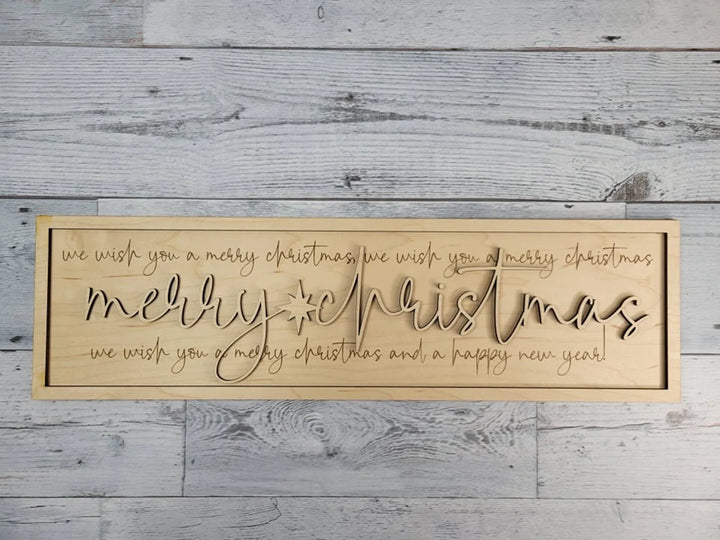 we wish you a merry christmas, we wish you a merry christmas
merry christmas
we wish you a merry christmas and a happy new year!